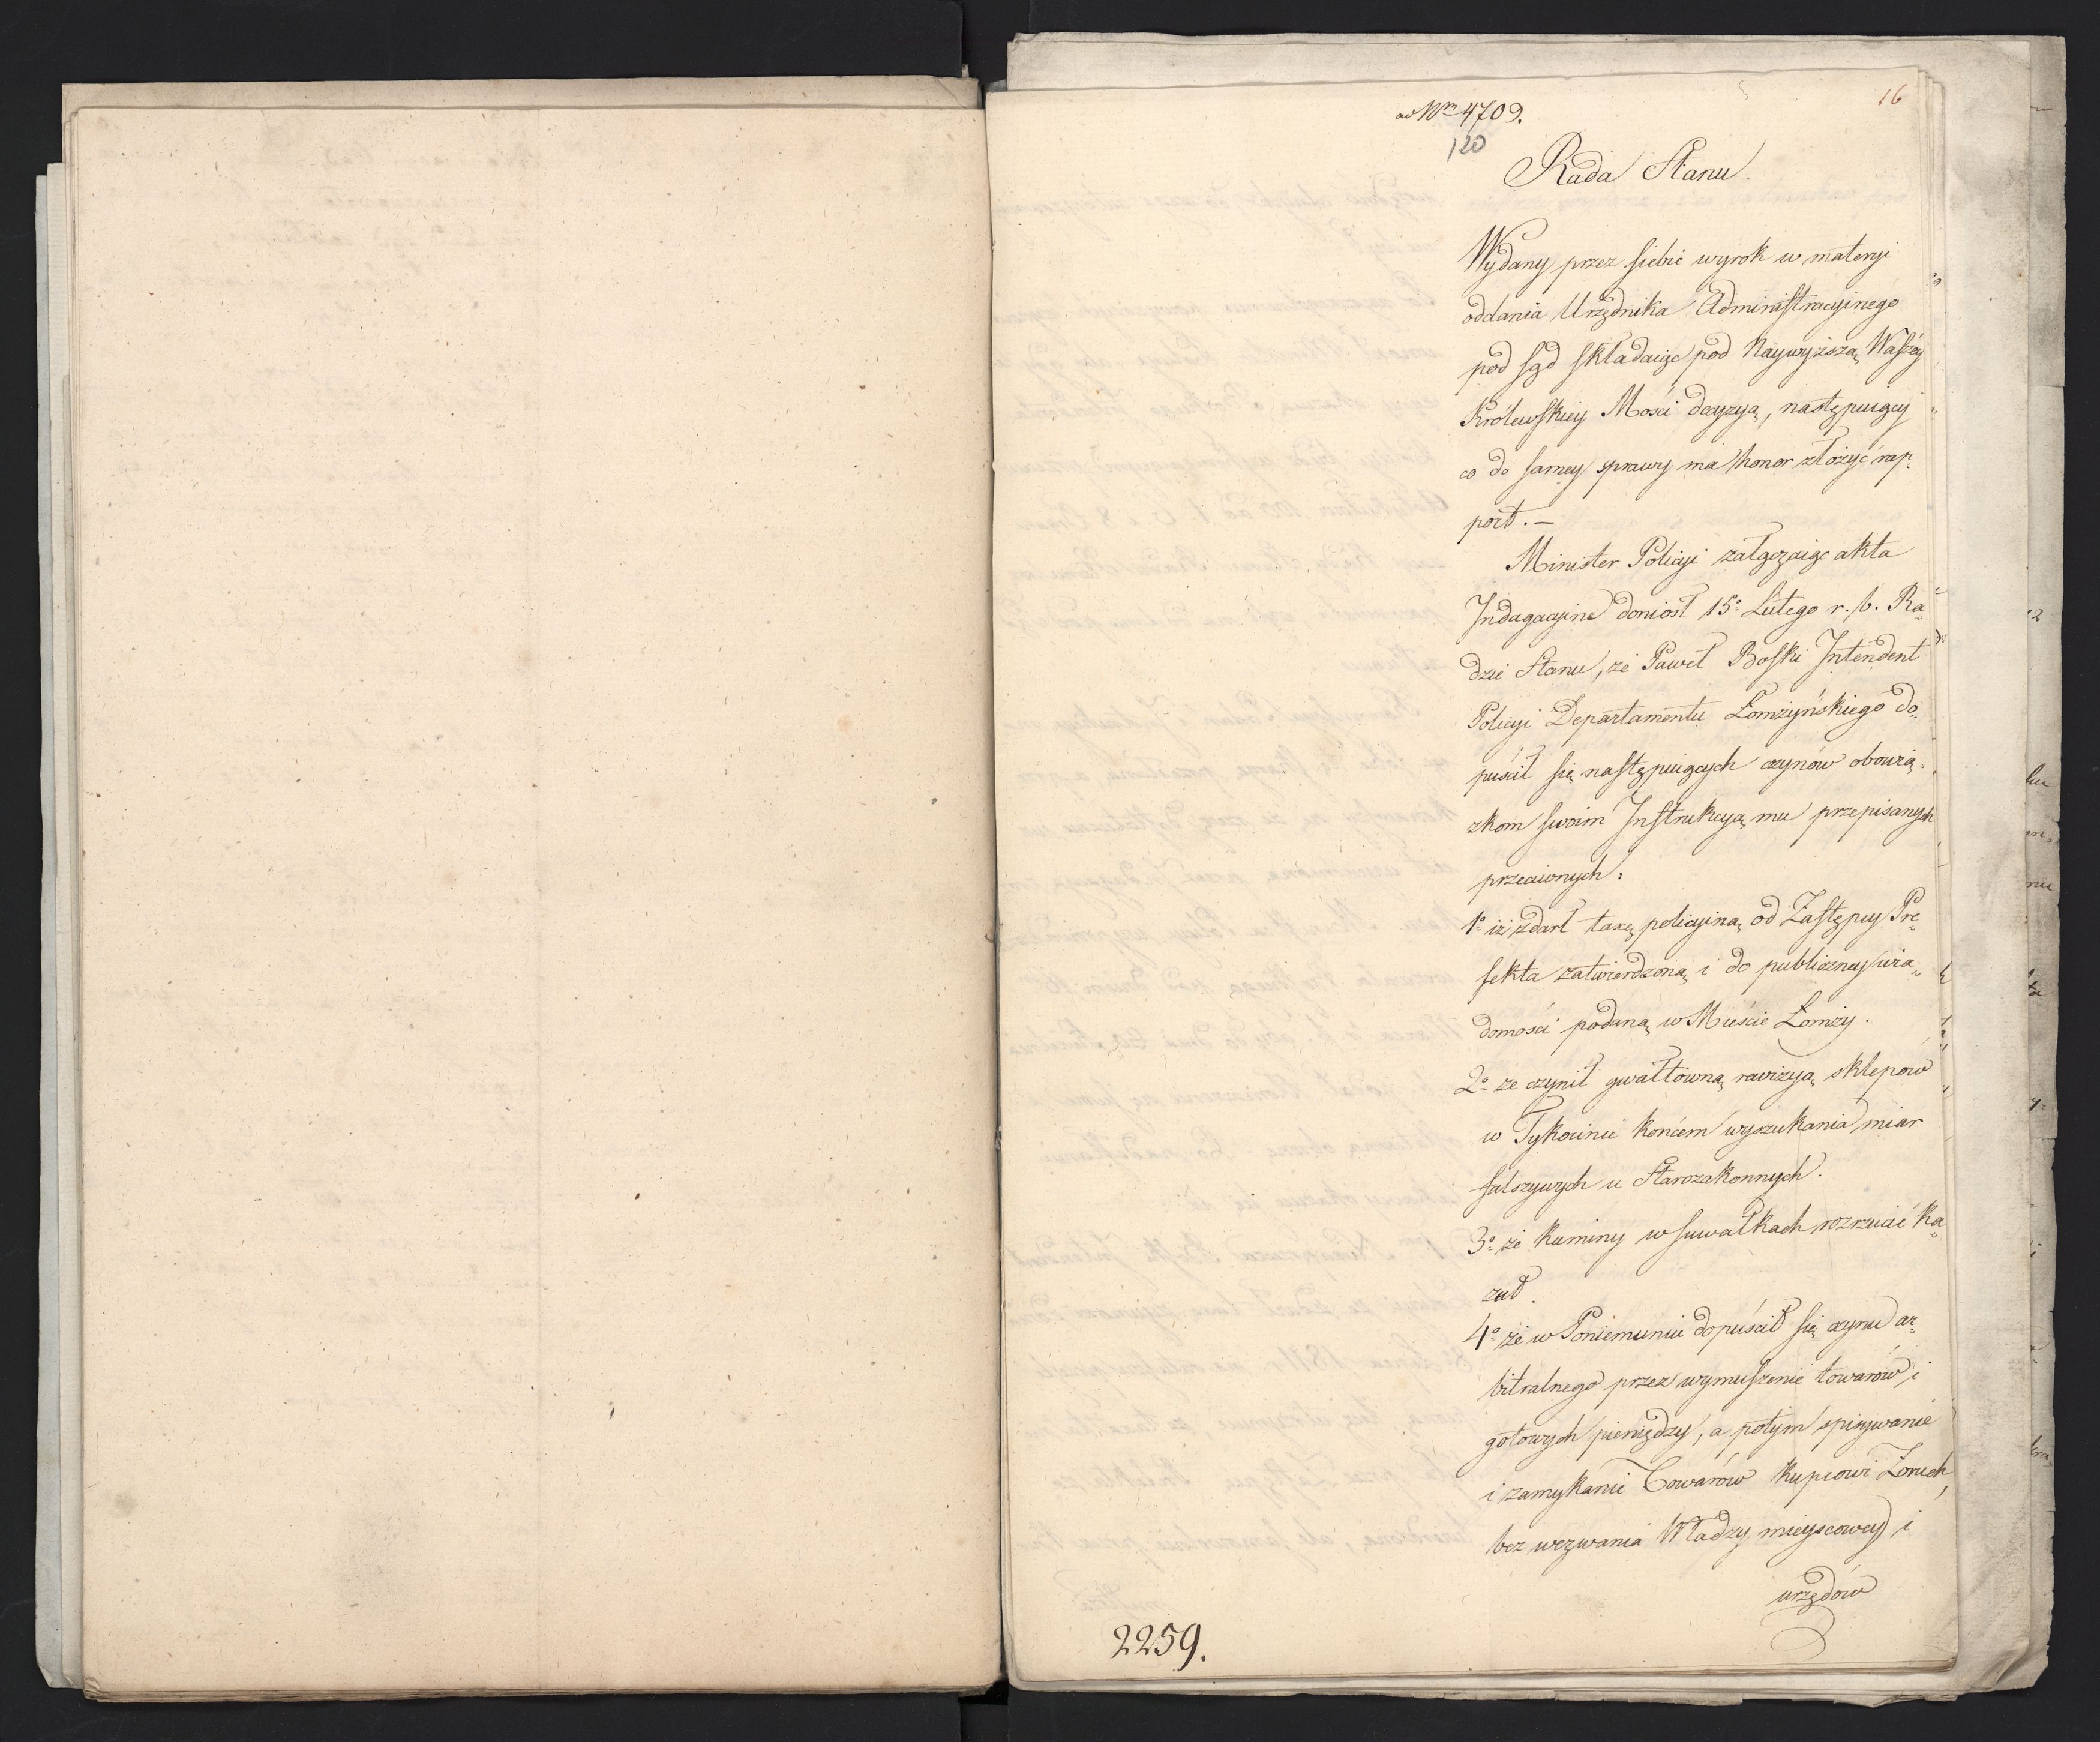 16
ad Nrm 4709.
120
Rada Stanu.
Wydany przez siebie wyrok w materyi
oddania Urzędnika Administracyinego
pod sąd składaiąc pod Naywyższą Waszéy
Królewskiey Mości decyzyą, następuiący
co do samey sprawy ma honor złożyć rap„
port. —
Minister Policyi załączaiąc akta
Indagacyine doniosł 15º Lutego r. b. Ra„
dzie Stanu, że Paweł Boski Intendent
Policyi Departamentu Łomzyńskiego do„
puścił się następuiących czynów obowią„
zkom swoim Instrukcyą mu przepisanych
przeciwnych:
1º iż zdarł taxę policyiną od Zastępcy Pre„
fekta zatwierdzoną i do publiczney wia„
domości podaną w Mieście Łomzy.
2º że czynił gwałtowną rewizyą sklepów
w Tykocinie końcem wyszukania miar
falszywych u Starozakonnych.
3º że kominy w Suwałkach rozrzucić ka„
zał.
4º że w Poniemuniu dopuścił się czynu ar„
bitralnego przez wymuszenie towarów i
gotowych pieniędzy, a potym spisywanie
i zamykanie Towarów kupcowi Zoruch,
bez wezwania Władzy mieyscowey i
urzędów
2259.